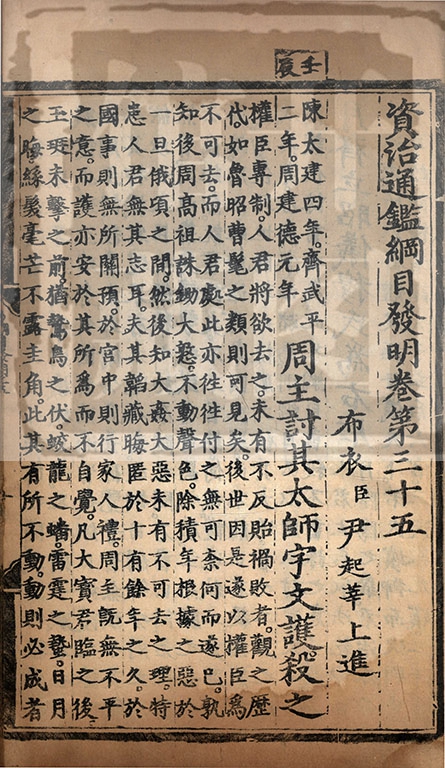 壬辰
資治通鑑綱目發明卷第三十五
布衣臣尹起莘上進
陳太建四年。齊武平
二年。周建德元年
周主討其太師宇文護殺之
權臣專制。人君將欲去之。未有不反貽禍敗者。觀之歷
代。如魯昭曹髦之類則可見矣。後世因是遂以權臣為
不可去。而人君處此亦往往付之無可柰何而遂已。孰
知後周高祖誅鋤大憝。不動聲色。除積年根據之惡於
一旦俄頃之間。然後知大姦大惡未有不可去之理。特
患人君無其志耳。夫其韜藏晦匿於十有餘年之久。於
國事則無所關預。於宮中則行家人禮。周主旣無不平
之意。而護亦安於其所為而不自覺。凡大寶君臨之後
玉珽未擊之前。猶鷙鳥之伏。蛟龍之蟠。雷霆之蟄。日月
之晦。絲髮毫芒不露圭角。此其有所不動。動則必成者